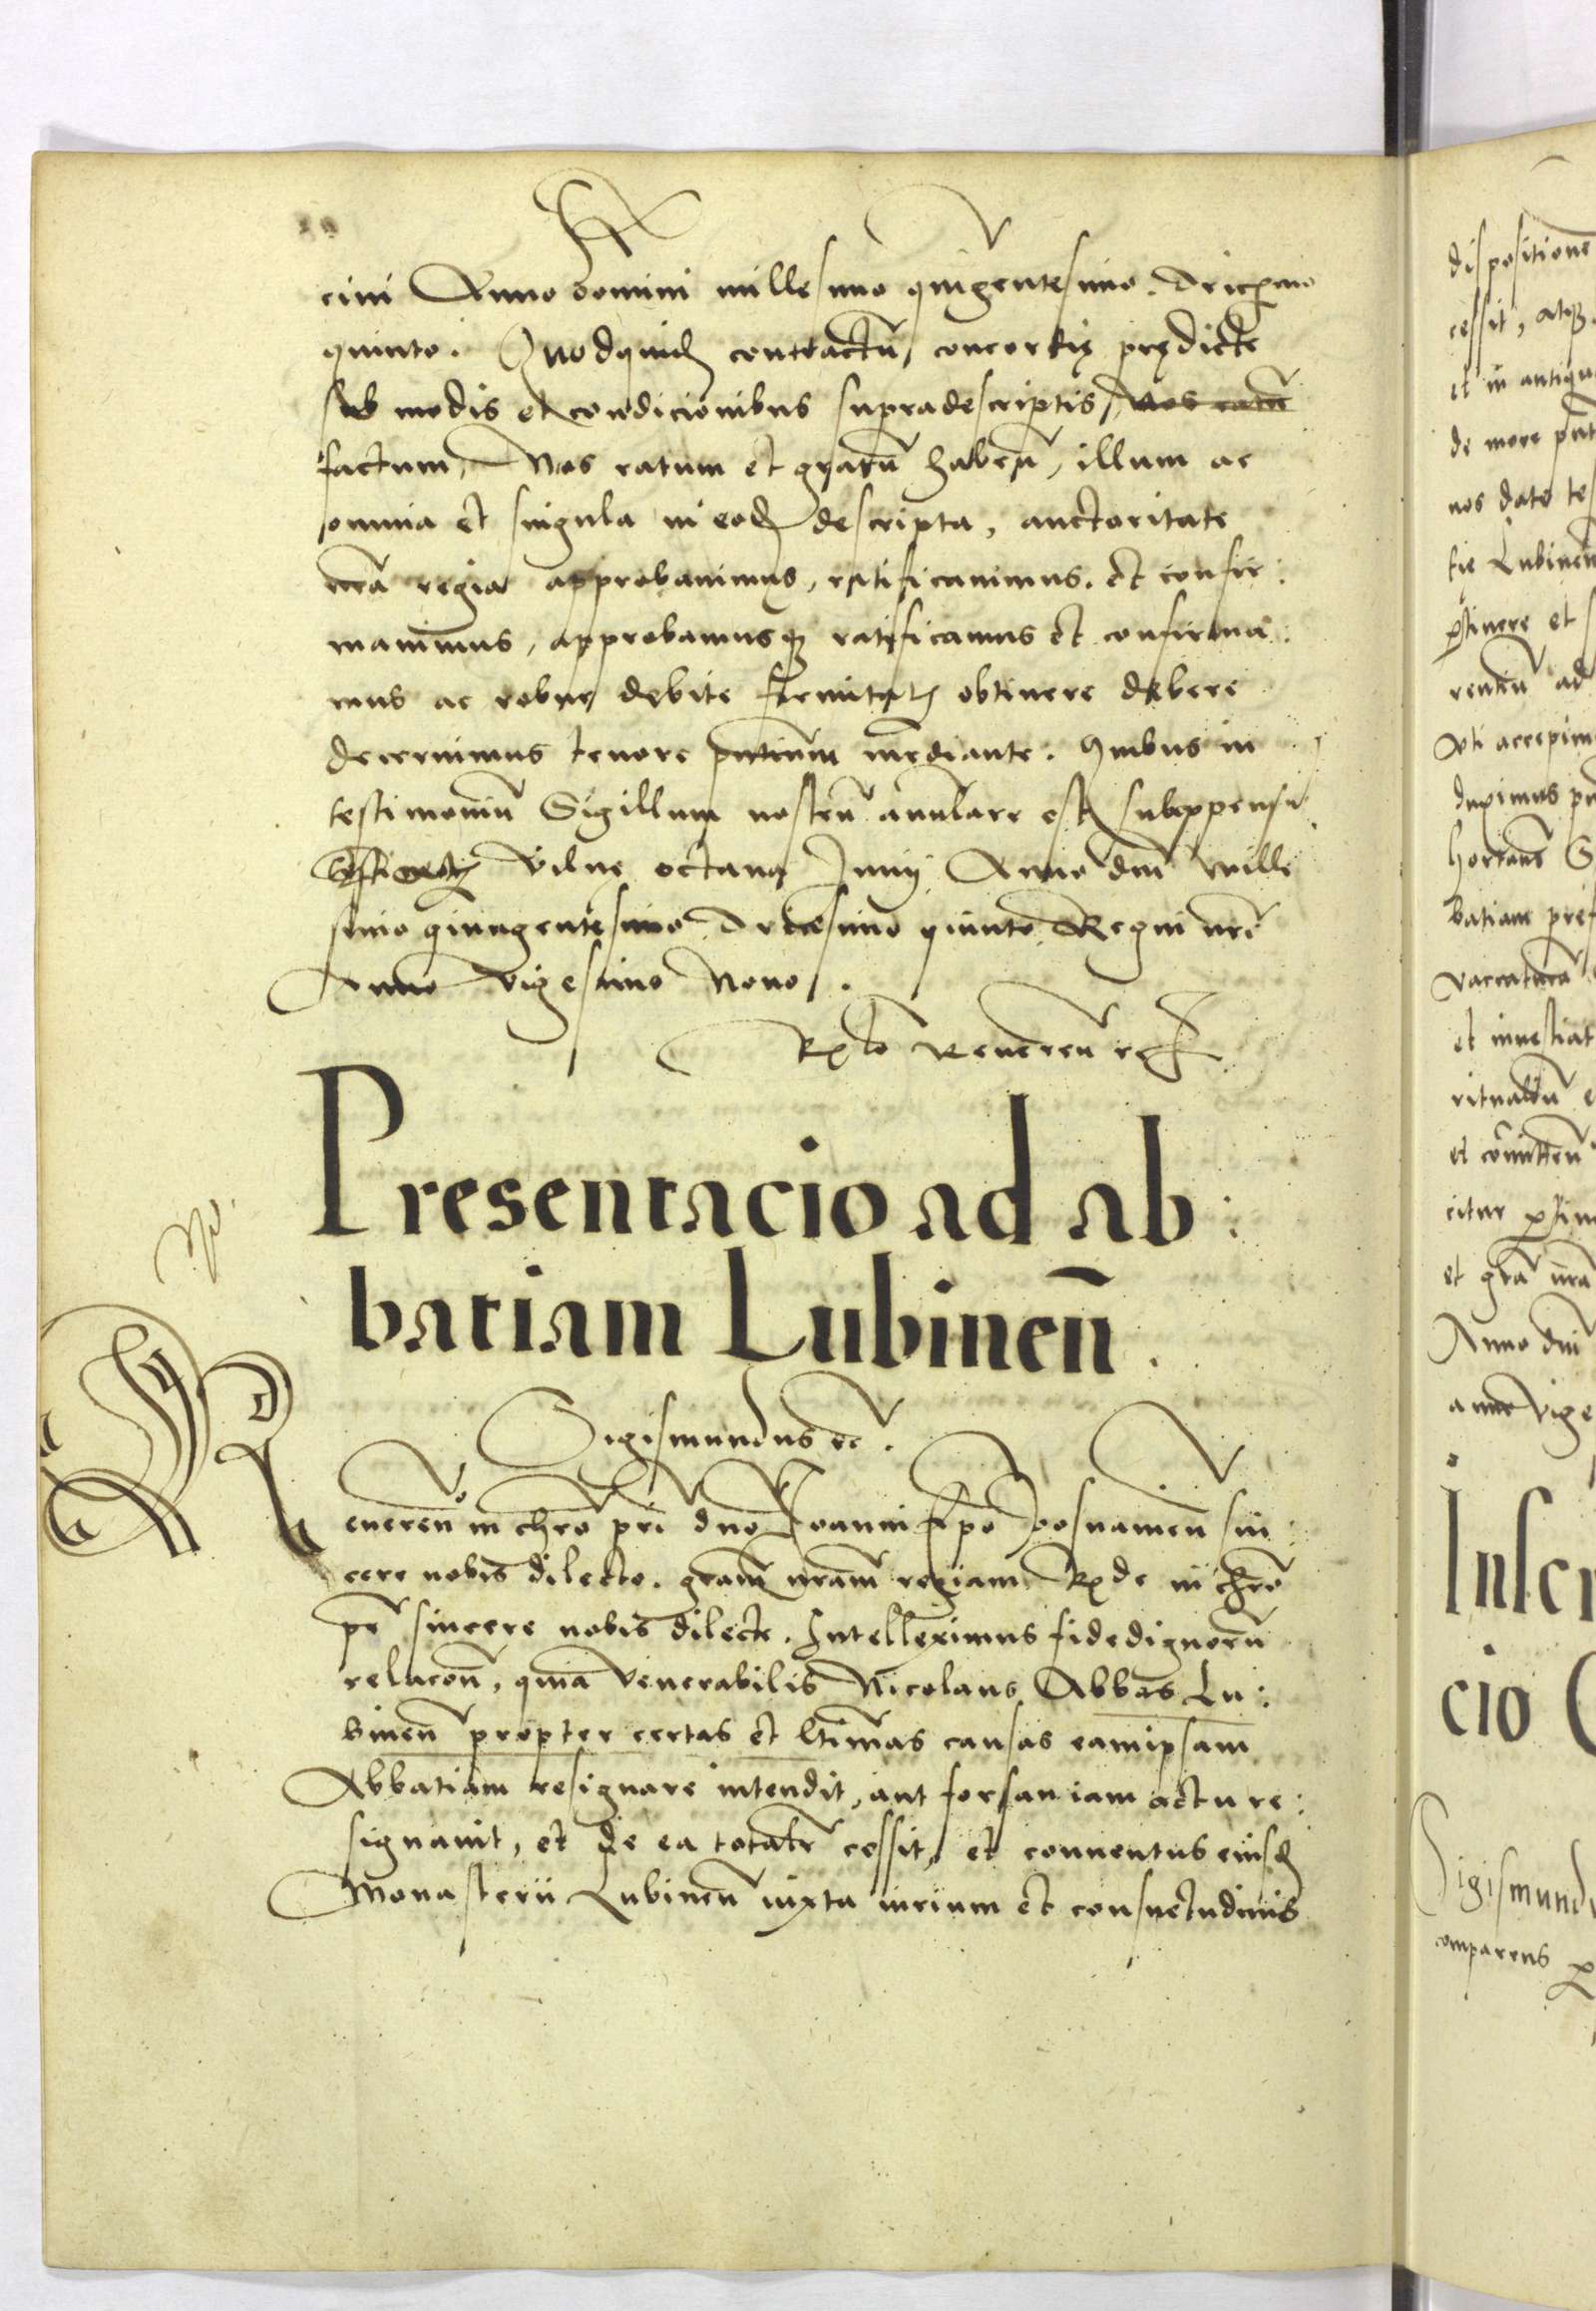 cini Anno domini millesimo quingentesimo tricesimo
quinto. Quodquid contractu concordie predicte
sub modis et condicionibus supradescriptis, nos ratu
factum, Nos ratum et gratu haben, illum ac
omnia et singula in eod descripta, auctoritate
nra regia approbavimus, ratificavimus et confir:
mavimus, approbamusq ratificamus et confirma:
mus ac robur debite firmitatis obtinere debere
decernimus tenore pntium mediante. Quibus in
testimoniu Sigillum nostru anulare est subappensu
Vilne octava Junij Anno dni Mille
simo quingentesimo Tricesimo quinto Regni nri
Anno vigesimo Nono.
Rlo Reveren rc
Presentacio ad ab:
batiam Lubinen̄.
Sigismundus rc.
Reveren in chro pri dno Joanni Epo Posnanien sin:
cere nobis dilecto. gram nram regiam. Rde in chro
pr sincere nobis dilecte. Intelleximus fidedignoru
relacon, quia Venerabilis Nicolaus Abbas Lu:
binen propter certas et ltimas causas eamipsam
Abbatiam resignare intendit, aut forsan iam actu re:
signavit, et de ea totalr cessit, et conventus eiusd
Monasterii Lubinen iuxta iurium et consuetudinis
dispositione
cessit, atq
et in antiqu
de more pnt
nos dato tes
tie Lubinen
ptinere et
renciu ad
Uti accepim
duximus pn
hortans
batiam pref
vaccatura
et investiat
ritualiu
et comitten
citur ptin
et gra nra
Anno dni
anno vige
Inscr
cio
Sigismundu
comparens